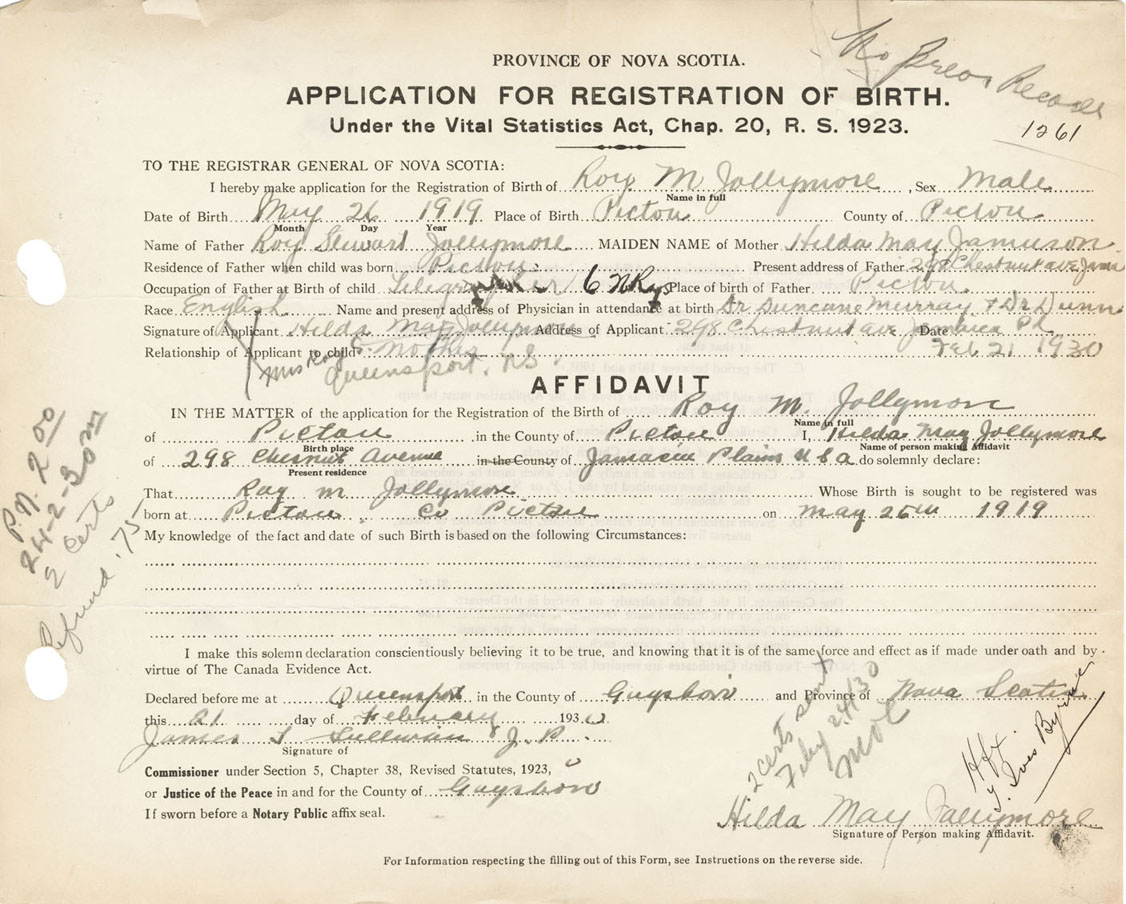 PROVINCE OF NOVA SCOTIA.
No Previous Record
APPLICATION FOR REGISTRATION OF BIRTH.
Under the Vital Statistics Act, Chap. 20, R. S. 1923.
1261
TO THE REGISTRAR GENERAL OF NOVA SCOTIA:
I hereby make application for the Registration of Birth of Roy M Jollymore, Sex Male
Name in full
Date of Birth May 26 1919 Place of Birth Pictou County of Pictou
Month Day Year
Name of Father Roy Stewart Jollymore MAIDEN NAME of Mother Hilda May Jamieson
Residence of Father when child was born Pictou Present address of Father 298 Chestnut ave
Occupation of Father at Birth of child C N Rys Place of birth of Father Pictou
Race English Name and present address of Physician in attendance at birth Dr Duncane Murray + Dr Dunn
Signature of Applicant Hilda May Jollymore Address of Applicant 298 Chestnut ave Jamaica Pl Date
Relationship of Applicant to child Mother Feb 21 1930
Mrs Roy
Queensport. N.S.
AFFIDAVIT
IN THE MATTER of the application for the Registration of the Birth of Roy M. Jollymore
Name in full
of Pictou in the County of Pictou I, Hilda May Jollymore
Birth place Name of person making Affidavit
of 298 Chesnut Avenue in the County of Jamacia Plains U S a do solemnly declare:
Present residence
That Roy M Jollymore Whose Birth is sought to be registered was
born at Pictou Co Pictou on May 26th 1919
My knowledge of the fact and date of such Birth is based on the following Circumstances:
P.N. 2 00
24-2-30
2 certs
Refund .75
I make this solemn declaration conscientiously believing it to be true, and knowing that it is of the same force and effect as if made under oath and by
virtue of The Canada Evidence Act.
Declared before me at Queensport in the County of Guysboro and Province of Nova Scotia
this 21 day of February 1930
James S Sullivan J. P.
Signature of
Commissioner under Section 5, Chapter 38, Revised Statutes, 1923,
or Justice of the Peace in and for the County of Guysboro
If sworn before a Notary Public affix seal.
2 certs sent
Feby 24/30
Hilda May Jollymore
Signature of Person making Affidavit.
For Information respecting the filling out of this Form, see Instructions on the reverse side.